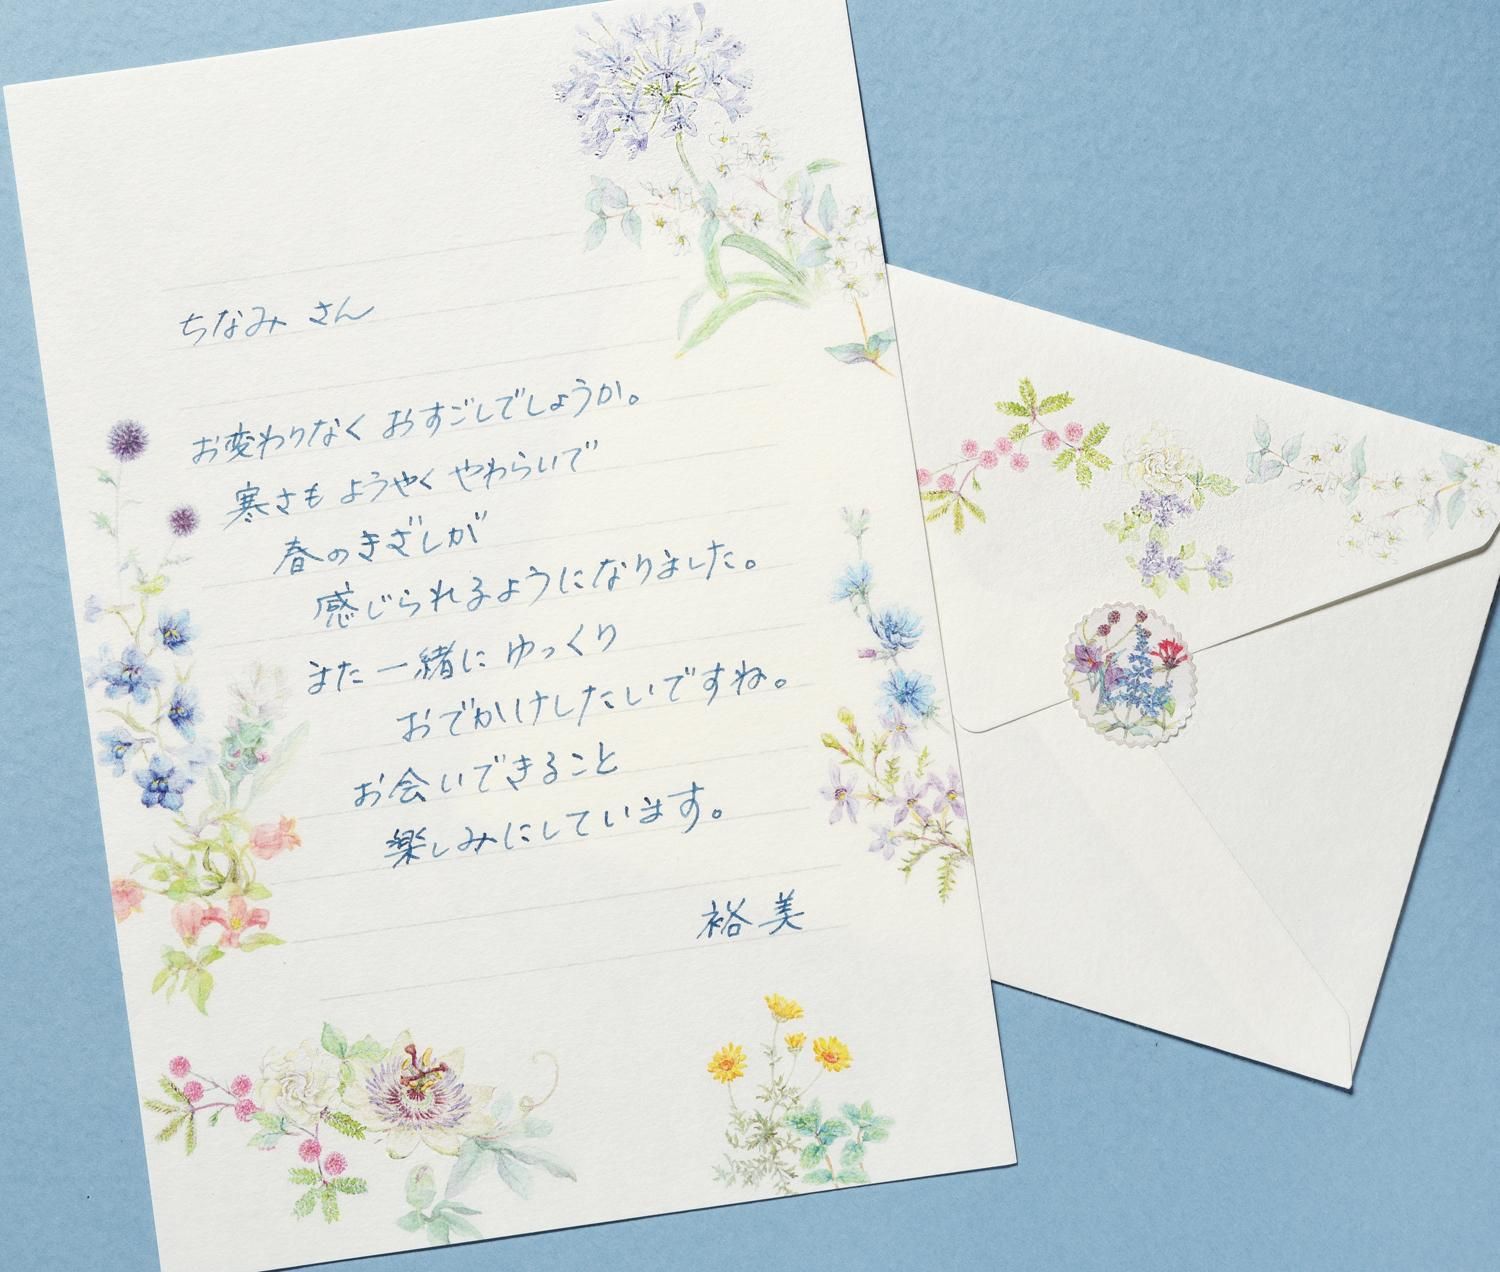 ちなみ さん
お変わりなく おすごしでしょうか。
寒さも ようやく やわらいで
春のきざしが
感じられるようになりました。
また 一緒に ゆっくり
おでかけしたいですね。
お会いできること
楽しみにしています。
裕美